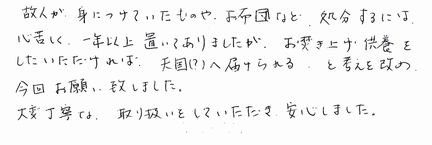 故人が身につけていたものや、お布団など、処分するには、
心苦しく、一年以上置いてありましたが、お焚き上げ供養を
したいただければ、天国(?)へ届けられる、と考えを改め、
今回お願い致しました。
大変丁寧な、取り扱いをしていただき、安心しました。